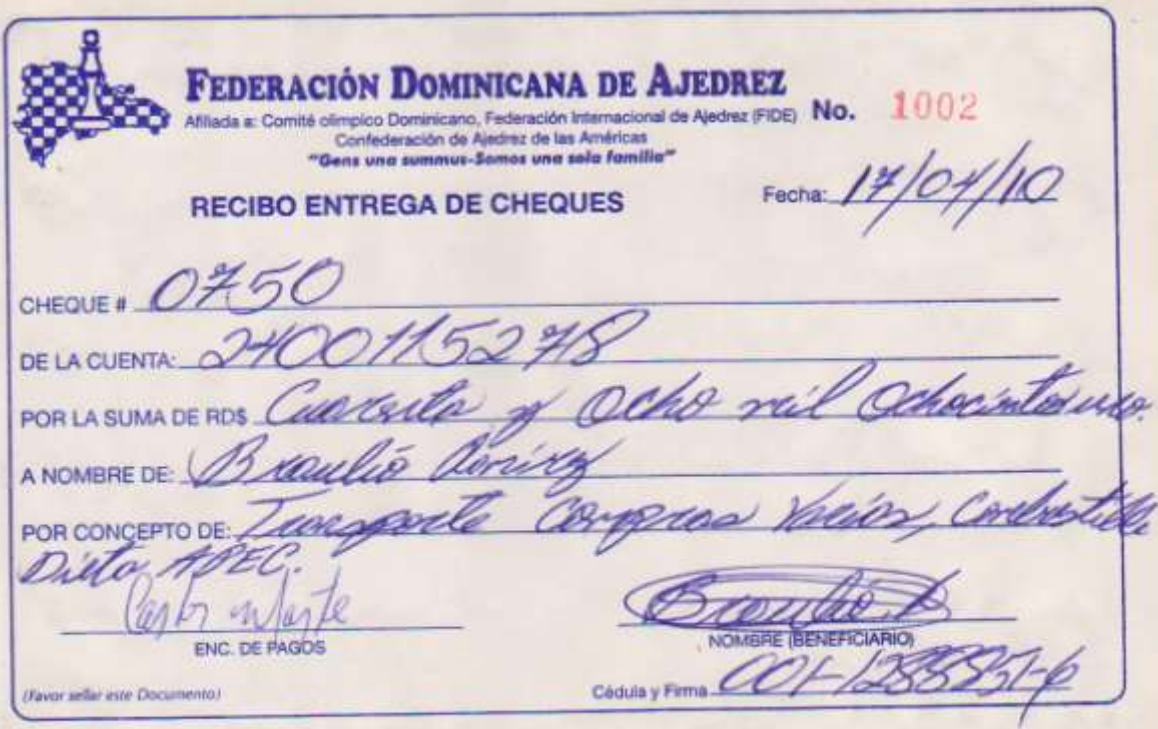 FEDERACIÓN DOMINICANA DE AJEDREZ
Afiliada a: Comité olímpico Dominicano, Federación Internacional de Ajedrez (FIDE) No. 1002
Confederación de Ajedrez de las Américas
"Gens una summus-Somos una sola familia"
RECIBO ENTREGA DE CHEQUES Fecha: 17/04/10
CHEQUE # 0750
DE LA CUENTA: 2400115278
POR LA SUMA DE RD$ Cuarenta y Ocho mil Ochocientos
A NOMBRE DE: Braulio
POR CONCEPTO DE: Transporte Compras Varias, Combustible
Dieta APEC.
Braulio
ENC. DE PAGOS NOMBRE (BENEFICIARIO)
(Favor sellar este Documento) Cédula y Firma 001-1288851-6